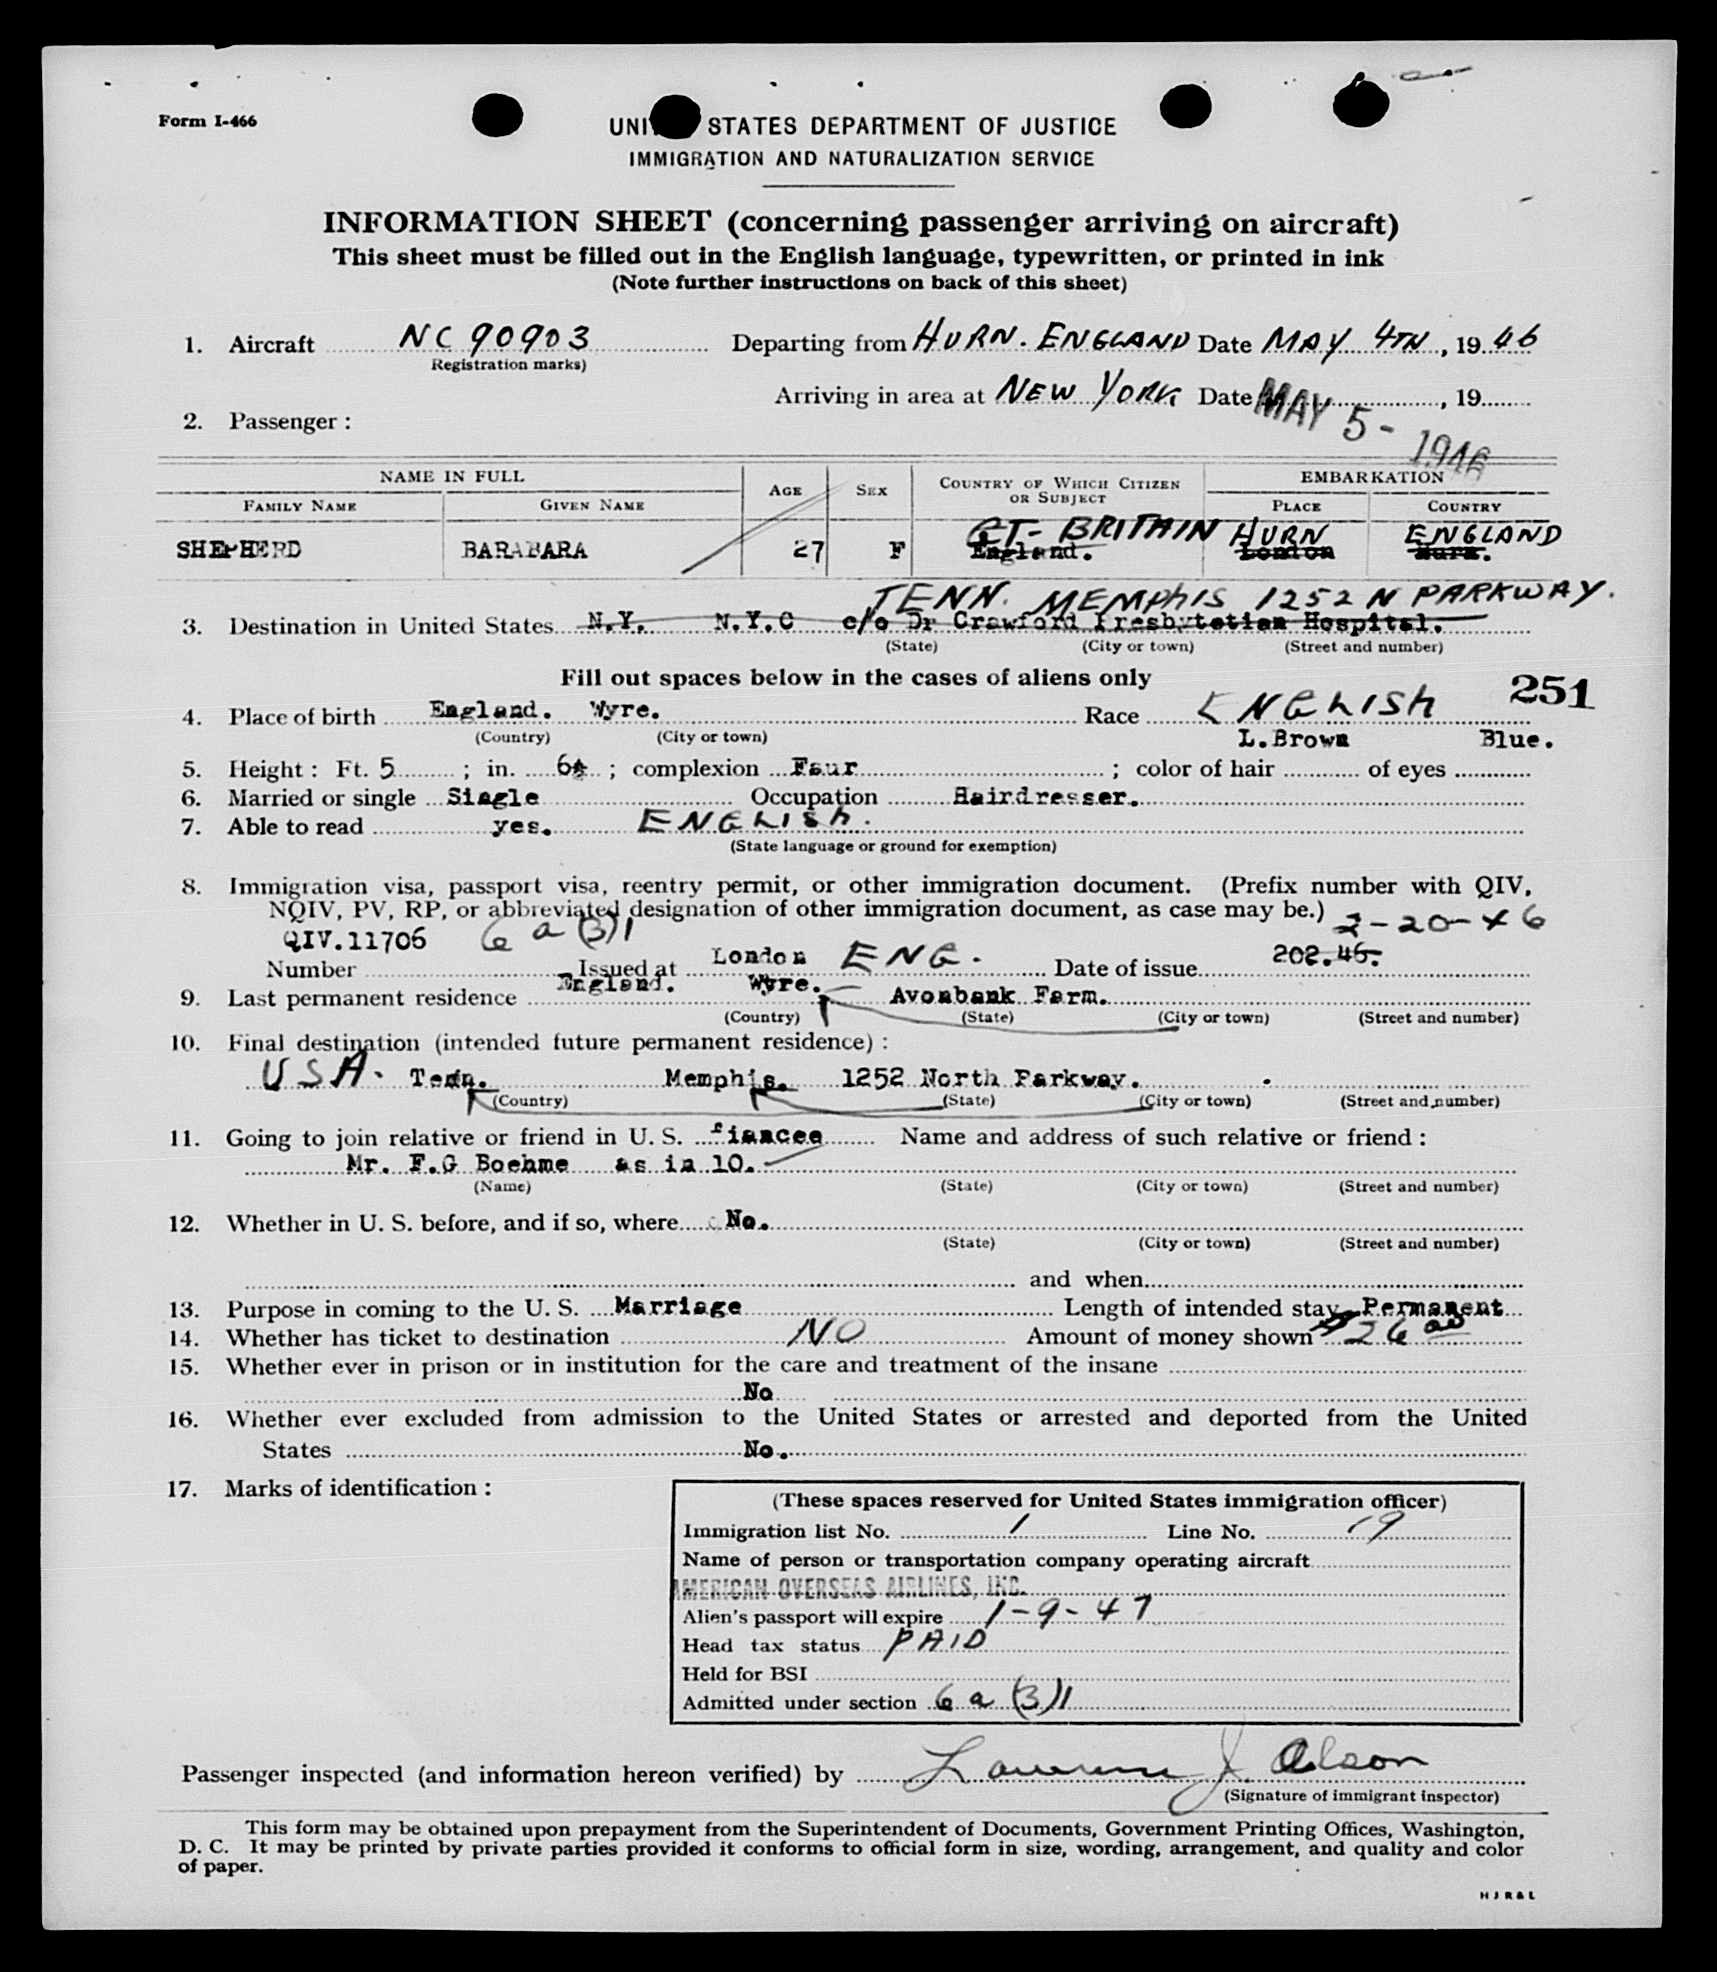 Form I-466
UNI STATES DEPARTMENT OF JUSTICE
IMMIGRATION AND NATURALIZATION SERVICE
INFORMATION SHEET (concerning passenger arriving on aircraft)
This sheet must be filled out in the English language, typewritten, or printed in ink
(Note further instructions on back of this sheet)
1. Aircraft NC 90903 Departing from HURN. ENGLAND Date MAY 4TH, 1946
(Registration marks)
Arriving in area at NEW YORK Date MAY 5 - 1946, 19
2. Passenger:
NAME IN FULL AGE SEX COUNTRY OF WHICH CITIZEN OR SUBJECT EMBARKATION
FAMILY NAME GIVEN NAME PLACE COUNTRY
GT- BRITAIN HURN ENGLAND
SHEPHERD BARABARA 27 F England. London Hurn.
TENN. MEMPHIS 1252 N PARKWAY.
3. Destination in United States N.Y. N.Y.C c/o Dr Crawford Presbytetian Hospital.
(State) (City or town) (Street and number)
Fill out spaces below in the cases of aliens only
251
4. Place of birth England. Wyre. Race ENGLISH
(Country) (City or town)
L.Brown Blue.
5. Height: Ft. 5 ; in. 6 ; complexion Faur ; color of hair of eyes
6. Married or single Single Occupation Hairdresser.
7. Able to read yes. ENGLISH.
(State language or ground for exemption)
8. Immigration visa, passport visa, reentry permit, or other immigration document. (Prefix number with QIV,
NQIV, PV, RP, or abbreviated designation of other immigration document, as case may be.)
QIV.11706 6 a (3)1 2-20-46
Number Issued at London ENG. Date of issue 202.46.
9. Last permanent residence England. Wyre. Avonbank Farm.
(Country) (State) (City or town) (Street and number)
10. Final destination (intended future permanent residence):
USA. Tenn. Memphis. 1252 North Parkway.
(Country) (State) (City or town) (Street and number)
11. Going to join relative or friend in U. S. fiancee Name and address of such relative or friend:
Mr. F.G Boehme as in 10.
(Name) (State) (City or town) (Street and number)
12. Whether in U. S. before, and if so, where No.
(State) (City or town) (Street and number)
and when
13. Purpose in coming to the U. S. Marriage Length of intended stay Permanent
14. Whether has ticket to destination NO Amount of money shown $26 00
15. Whether ever in prison or in institution for the care and treatment of the insane
No
16. Whether ever excluded from admission to the United States or arrested and deported from the United
States No.
17. Marks of identification:
(These spaces reserved for United States immigration officer)
Immigration list No. 1 Line No. 19
Name of person or transportation company operating aircraft
AMERICAN OVERSEAS AIRLINES, INC.
Alien's passport will expire 1-9-47
Head tax status PAID
Held for BSI
Admitted under section 6 a (3)1
Passenger inspected (and information hereon verified) by Lawrence J. Olson
(Signature of immigrant inspector)
This form may be obtained upon prepayment from the Superintendent of Documents, Government Printing Offices, Washington,
D. C. It may be printed by private parties provided it conforms to official form in size, wording, arrangement, and quality and color
of paper.
H J R & L